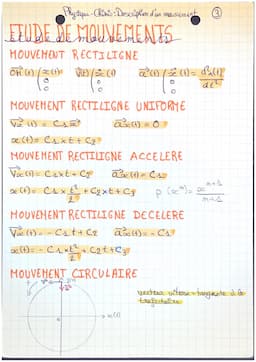 Physique-Chimie : Description d'un mouvement ③
ETUDE DE MOUVEMENTS
MOUVEMENT RECTILIGNE
OM(t) / x(t) 0 0 V(t) / ẋ(t) 0 0 a(t) / ẍ(t) = d²x(t)/dt² 0 0
MOUVEMENT RECTILIGNE UNIFORME
Vx(t) = C1 ax(t) = 0
x(t) = C1 x t + C2
MOUVEMENT RECTILIGNE ACCELERE
Vx(t) = C1 x t + C2 ax(t) = C1
x(t) = C1 x t²/2 + C2 x t + C3 P (x^n) = x^(n+1)/(n+1)
MOUVEMENT RECTILIGNE DECELERE
Vx(t) = - C1 t + C2 ax(t) = - C1
x(t) = - C1 x t²/2 + C2 t + C3
MOUVEMENT CIRCULAIRE
vecteur vitesse = tangente à la
trajectoire
x(t)